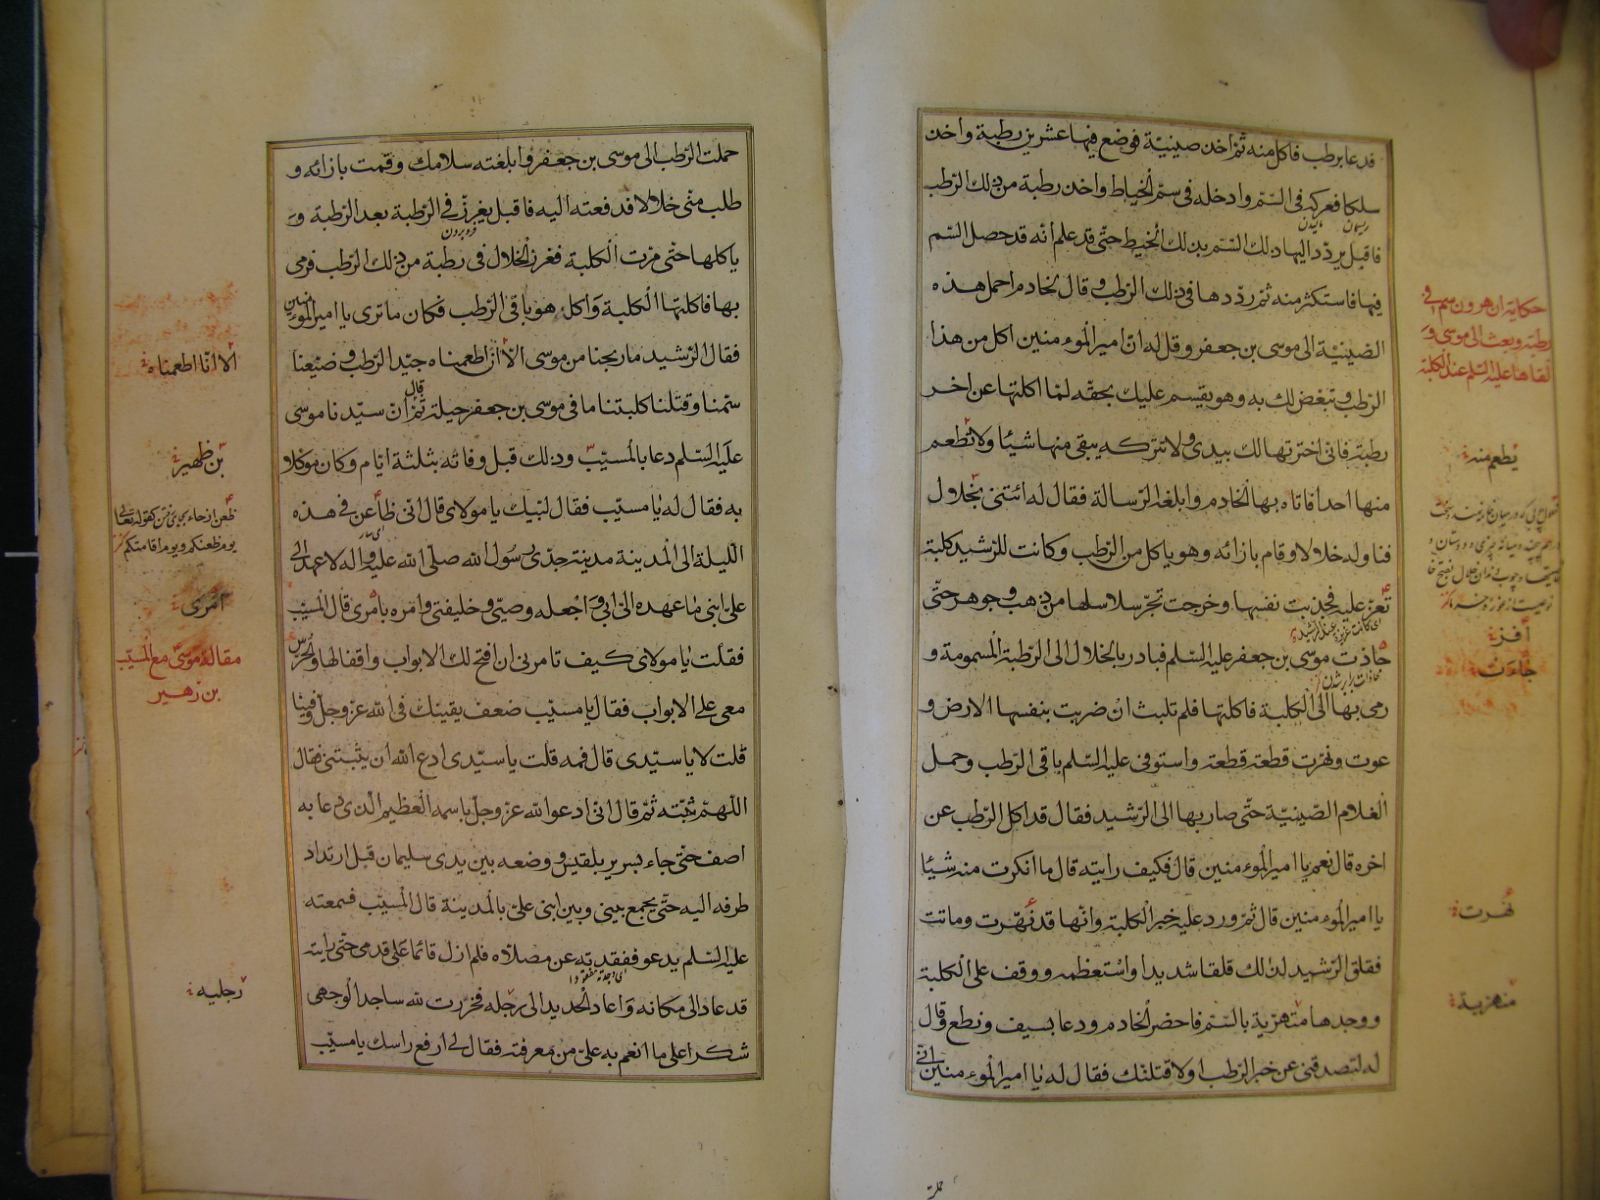 قد دعا برطب فاكل منه ثمّ اخذ صينيّة فوضع فيها عشرين رطبة واخذ
سلكا فعركه فى السّم وادخله فى سمّ الخياط واخذ رطبة من ذلك الرّطب
ريسمان ماليدن
فاقبل يردّد اليها ذلك السّم بذلك الخيط حتّى قد علم انّه قد حصل السّم
فيها فاستكثر منه ثمّ ردّدها فى ذلك الرّطب و قال لخادم احمل هذه
الصّينيّة الى موسى بن جعفر و قل له انّ امير المؤمنين اكل من هذا
الرّطب و تبغّض لك به وهو يقسم عليك بحقّه لمّا اكلتها عن اخر
رطبة فانّى اخترتها لك بيدى ولا تتركه يبقى منها شيئا ولا تطعم
منها احدا فاتاه بها الخادم وابلغه الرّسالة فقال له ائتنى بخلال
فناوله خلالا و قام بازائه وهو ياكل من الرّطب وكانت للرّشيد كلبة
تعزّ عليه فجذبت نفسها وخرجت تجرّ سلاسلها من ذهب و جوهر حتّى
حاذت موسى بن جعفر عليه السّلم فبادر بالخلال الى الرّطبة المسمومة و
رمى بها الى الكلبة فاكلتها فلم تلبث ان ضربت بنفسها الارض و
عوت وتهرّت قطعة قطعة واستوفى عليه السّلم باقى الرّطب وحمل
الغلام الصّينيّة حتّى صار بها الى الرّشيد فقال قد اكل الرّطب عن
اخره قال نعم يا امير المؤمنين قال فكيف رايته قال ما انكرت منه شيئا
يا امير المؤمنين قال ثمّ ورد عليه خبر الكلبة وانّها قد تهرّت وماتت
فقلق الرّشيد لذلك قلقا شديدا واستعظمه ووقف على الكلبة
ووجدها متهرّية بالسّم فاحضر الخادم ودعا بسيف ونطع وقال
له لتصدقنى عن خبر الرّطب اولاقتلنّك فقال له يا امير المؤمنين انّى
حكاية ان هرون سم فى
رطبة وبعث الى موسى و
القاها عليه السّلم عند الكلبة
يطعم منه
اعز
جاءت
تهرت
منهزية
حملت
حملت الرّطب الى موسى بن جعفر وابلغته سلامك وقمت بازائه و
طلب منّى خلالا فدفعته اليه فاقبل يغرز فى الرّطبة بعد الرّطبة و
فروبردن
ياكلها حتّى مرّت الكلبة فغرز الخلال فى رطبة من ذلك الرّطب فرمى
بها فاكلتها الكلبة و اكل هو باقى الرّطب فكان ما ترى يا امير المؤمنين
فقال الرّشيد ما ربحنا من موسى الّا انّا اطعمناه جيّد الرّطب و ضيّعنا
سمّنا و قتلنا كلبتنا ما فى موسى بن جعفر حيلة ثمّ قال انّ سيّدنا موسى
عليه السّلم دعا بالمسيّب وذلك قبل وفاته بثلثة ايّام وكان موكّلا
به فقال له يا مسيّب فقال لبّيك يا مولاى قال انّى ظاعن فى هذه
اللّيلة الى المدينة مدينة جدّى رسول الله صلّى الله عليه واله لاعهد الى
علىّ ابنى ما عهده الىّ ابى و اجعله وصيّى وخليفتى وامره بامرى قال المسيّب
فقلت يا مولاى كيف تامرنى ان افتح لك الابواب واقفالها والحرس
معى على الابواب فقال يا مسيّب ضعف يقينك فى الله عزّ وجلّ وفينا
قلت لا يا سيّدى قال فمه قلت يا سيّدى ادع الله ان يثبّتنى فقال
اللّهمّ ثبّته ثمّ قال انّى ادعو الله عزّ وجلّ باسمه العظيم الّذى دعا به
اصف حتّى جاء بسرير بلقيس و وضعه بين يدى سليمان قبل ارتداد
طرفه اليه حتّى يجمع بينى وبين ابنى علىّ بالمدينة قال المسيّب فسمعته
عليه السّلم يدعو ففقدته عن مصلّاه فلم ازل قائما على قدمى حتّى رايته
اى وجدته مفقودا
قد عاد الى مكانه و اعاد الحديد الى رجله فخررت لله ساجدا لوجهى
شكرا على ما انعم به علىّ من معرفته فقال لى ارفع راسك يا مسيّب
الا انّا اطعمناه
بن ظهير
يوم ظعنكم ويوم اقامتكم
امرى
مقالة موسى مع المسيّب
بن زهير
رجليه